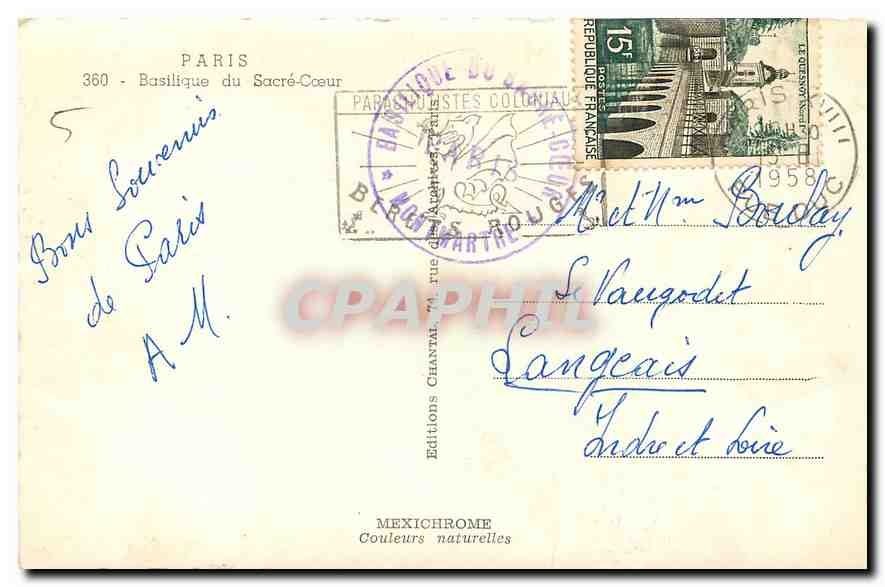 PARIS
360 - Basilique du Sacré-Cœur
5
Bons Souvenirs
de Paris
A M.
PARACHUTISTES COLONIAUX
BERETS ROUGES
BASILIQUE DU SACRÉ-CŒUR
PARIS
* MONTMARTRE *
15F
POSTES
REPUBLIQUE FRANÇAISE
LE QUESNOY (Nord)
PARIS XVIII
1958
Mr et Mm Boulay
Le Vaugodet
Langeais
Indre et Loire
Editions CHANTAL, 74, rue des Archives, Paris
CPAPHIL
MEXICHROME
Couleurs naturelles